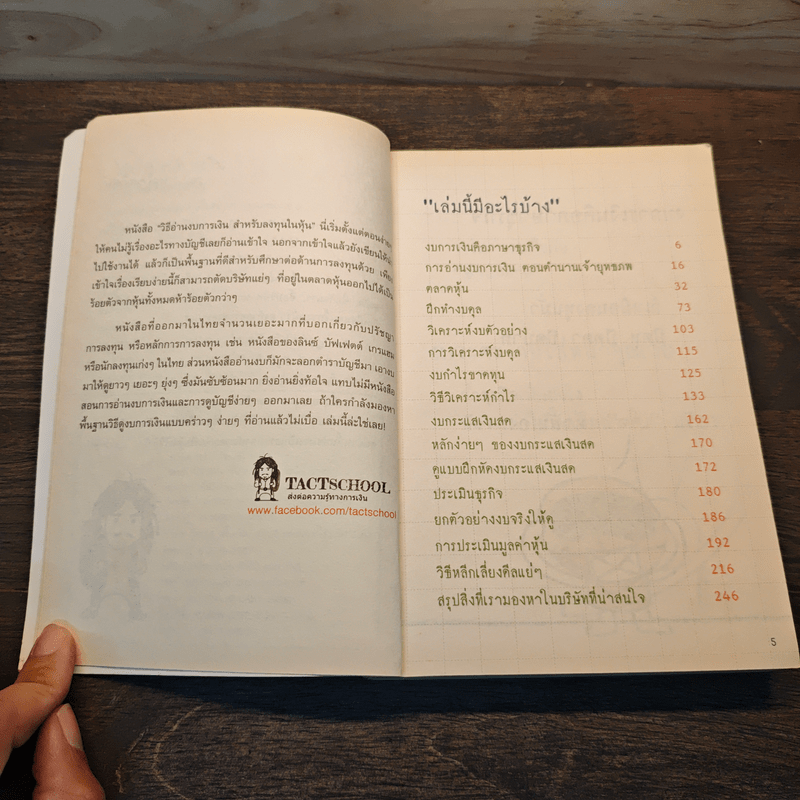 หนังสือ "วิธีอ่านงบการเงิน สำหรับลงทุนในหุ้น" นี่เริ่มตั้งแต่ตอน
ให้คนไม่รู้เรื่องอะไรทางบัญชีเลยก็อ่านเข้าใจ นอกจากเข้าใจแล้วยังเขียนให้
ไปใช้งานได้ แล้วก็เป็นพื้นฐานที่ดีสำหรับศึกษาต่อด้านการลงทุนด้วย
เข้าใจเรื่องเรียบง่ายนี้ก็สามารถตัดบริษัทแย่ๆ ที่อยู่ในตลาดหุ้นออกไปได้เป็น
ร้อยตัวจากหุ้นทั้งหมดห้าร้อยตัวกว่าๆ
หนังสือที่ออกมาในไทยจำนวนเยอะมากที่บอกเกี่ยวกับปรัชญา
การลงทุน หรือหลักการการลงทุน เช่น หนังสือของลินซ์ บัฟเฟตต์ เกรแฮม
หรือนักลงทุนเก่งๆ ในไทย ส่วนหนังสืออ่านงบก็มักจะลอกตำราบัญชีมา เอางบ
มาให้ดูยาวๆ เยอะๆ ยุ่งๆ ซึ่งมันซับซ้อนมาก ยิ่งอ่านยิ่งท้อใจ แทบไม่มีหนังสือ
สอนการอ่านงบการเงินและการดูบัญชีง่ายๆ ออกมาเลย ถ้าใครกำลังมองหา
พื้นฐานวิธีดูงบการเงินแบบคร่าวๆ ง่ายๆ ที่อ่านแล้วไม่เบื่อ เล่มนี้ล่ะใช่เลย!
TACTSCHOOL
ส่งต่อความรู้ทางการเงิน
www.facebook.com/tactschool
"เล่มนี้มีอะไรบ้าง"
งบการเงินคือภาษาธุรกิจ 6
การอ่านงบการเงิน ตอนตำนานเจ้ายุทธภพ 16
ตลาดหุ้น 32
ฝึกทำงบดุล 73
วิเคราะห์งบตัวอย่าง 103
การวิเคราะห์งบดุล 115
งบกำไรขาดทุน 125
วิธีวิเคราะห์กำไร 133
งบกระแสเงินสด 162
หลักง่ายๆ ของงบกระแสเงินสด 170
ดูแบบฝึกหัดงบกระแสเงินสด 172
ประเมินธุรกิจ 180
ยกตัวอย่างงบจริงให้ดู 186
การประเมินมูลค่าหุ้น 192
วิธีหลีกเลี่ยงดีลแย่ๆ 216
สรุปสิ่งที่เรามองหาในบริษัทที่น่าสนใจ 246
5